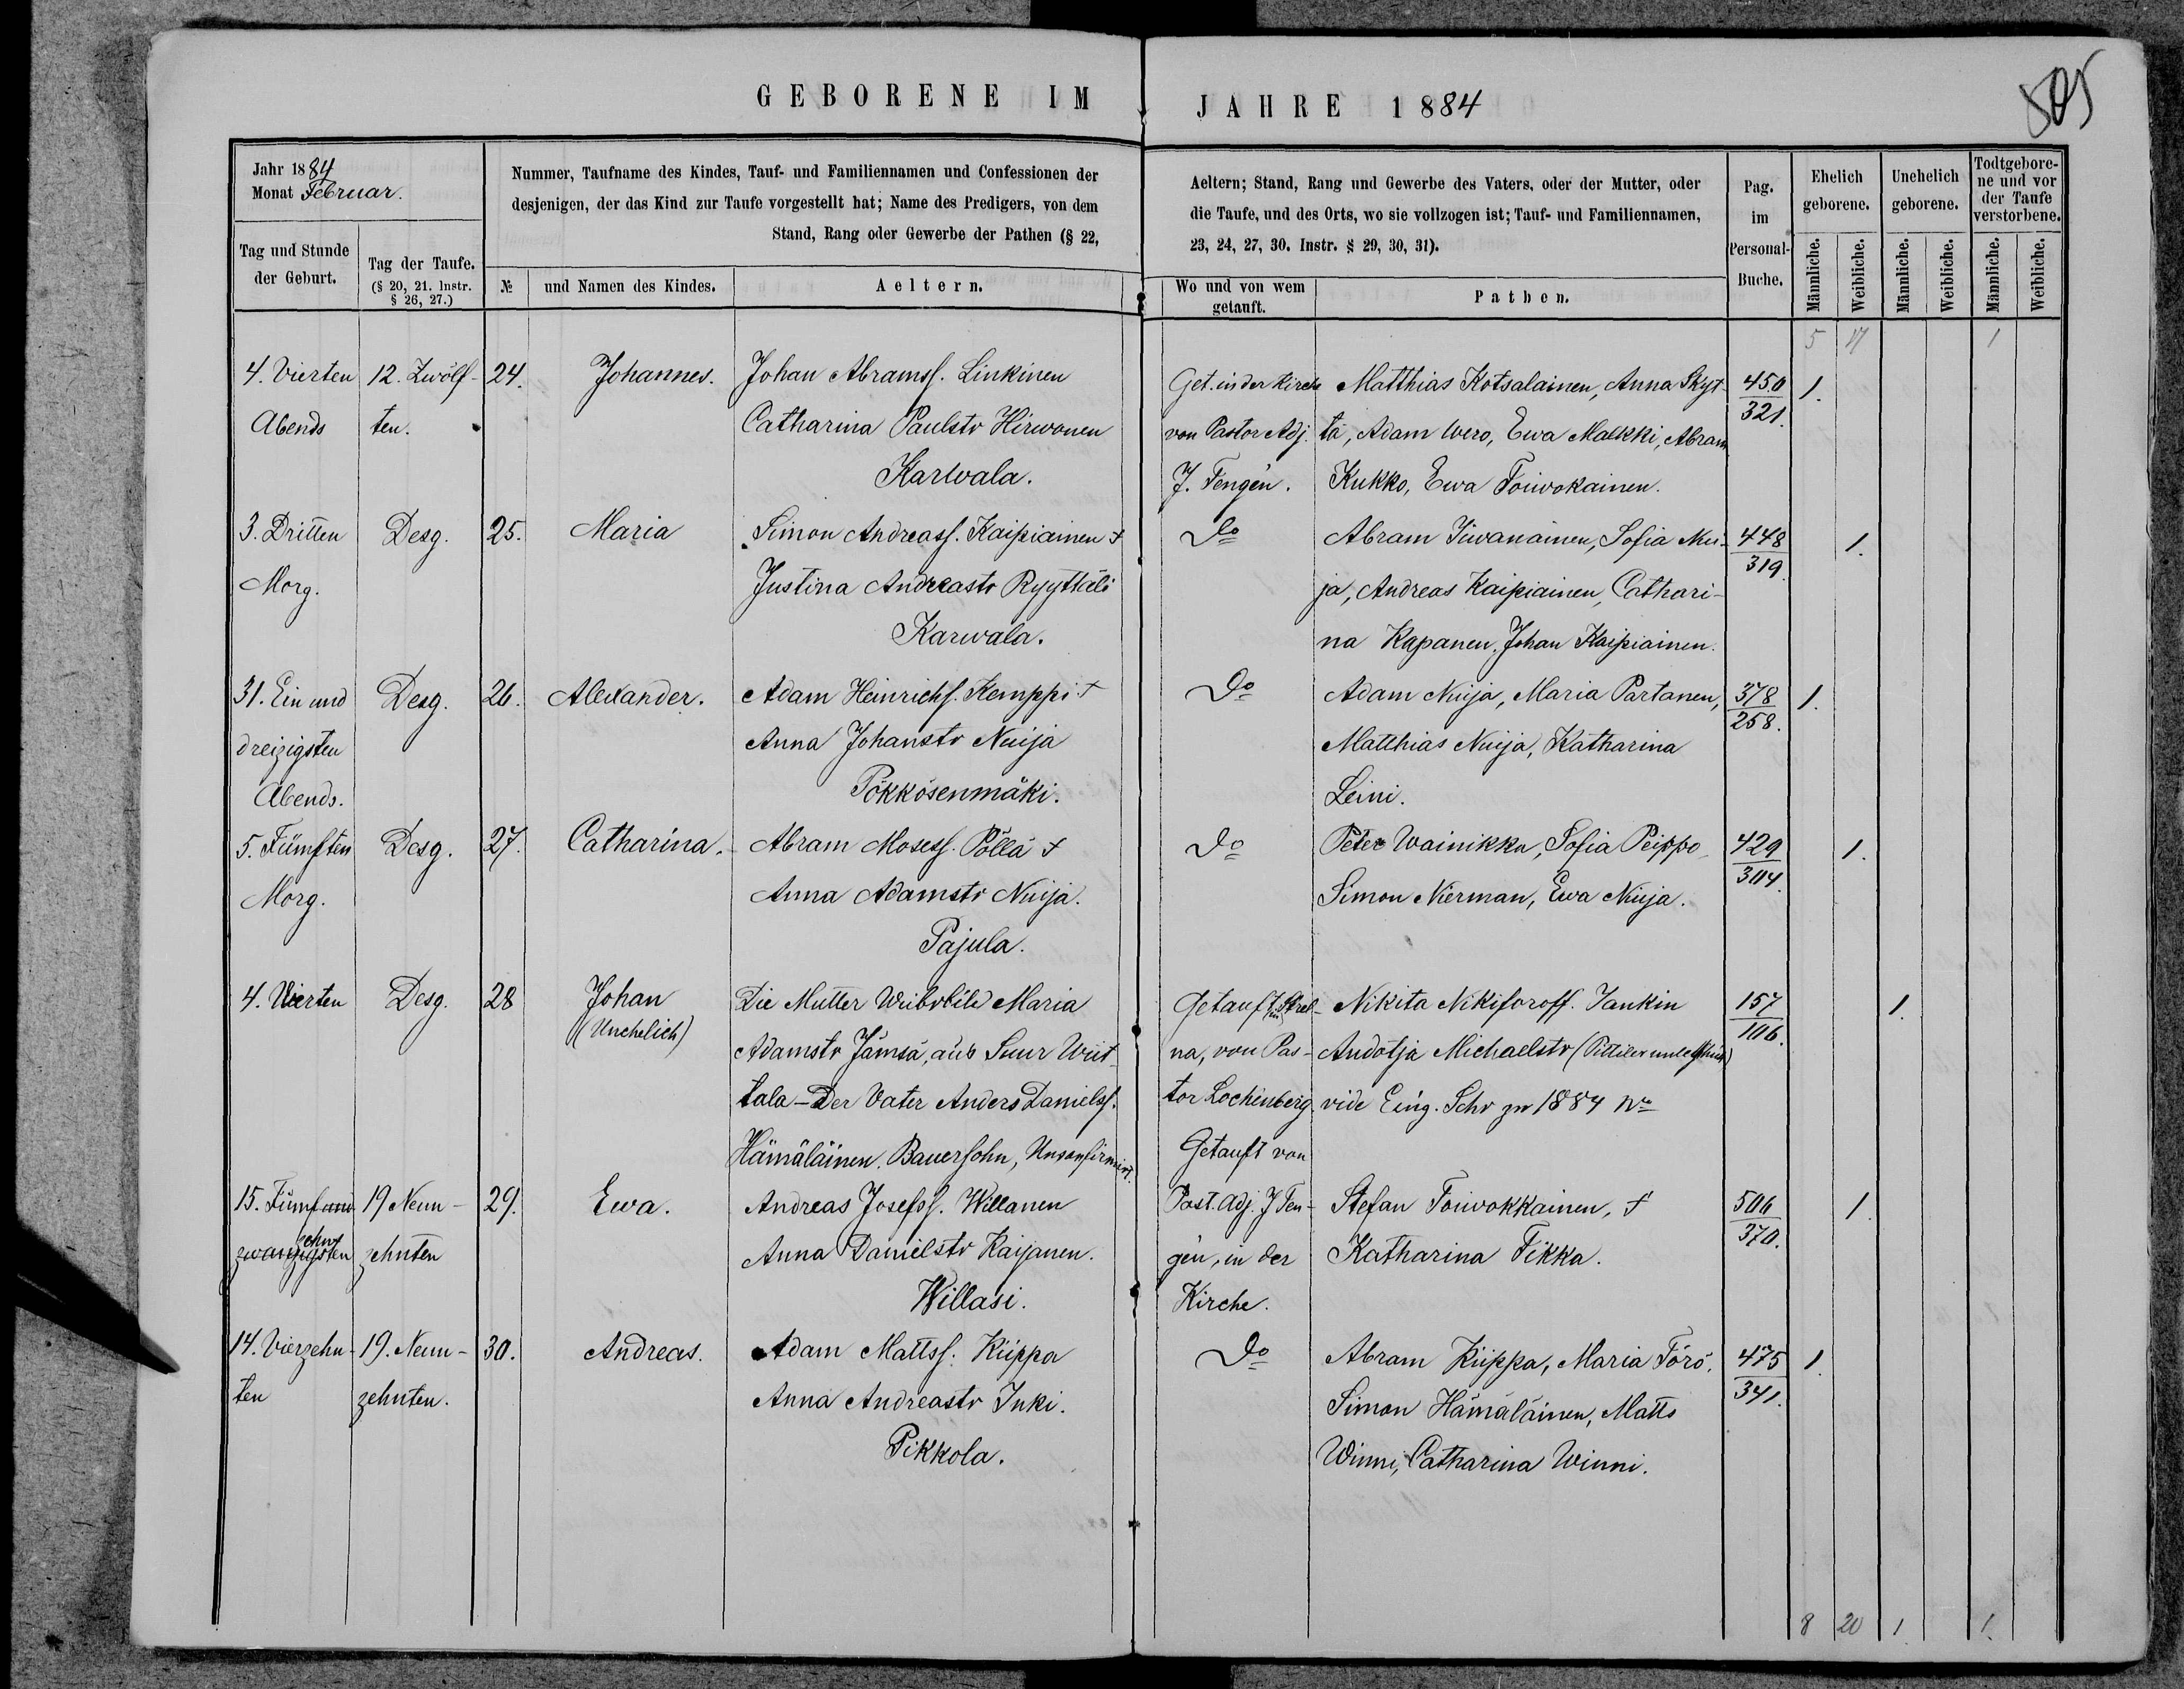 GEBORENE IM JAHRE 1884
505
Jahr 1884
Monat Februar.
Nummer, Taufname des Kindes, Tauf- und Familiennamen und Confessionen der
desjenigen, der das Kind zur Taufe vorgestellt hat; Name des Predigers, von dem
Stand, Rang oder Gewerbe der Pathen (§ 22,
Aeltern; Stand, Rang und Gewerbe des Vaters, oder der Mutter, oder
die Taufe, und des Orts, wo sie vollzogen ist; Tauf- und Familiennamen,
23, 24, 27, 30. Instr. § 29, 30, 31).
Pag.
im
Personal-
Buche.
Ehelich
geborene.
Unehelich
geborene.
Todtgebore-
ne und vor
der Taufe
verstorbene.
Tag und Stunde
der Geburt.
Tag der Taufe.
(§ 20, 21. Instr.
§ 26, 27.)
№
und Namen des Kindes.
Aeltern.
Wo und von wem
getauft.
Pathen.
Männliche.
Weibliche.
Männliche.
Weibliche.
Männliche.
Weibliche.
5 17 1
4. Vierten 12. Zwölf- 24. Johannes. Johan Abramss. Linkinen Get. in der Kirche Matthias Kotsalainen, Anna Skyt- 450 1.
Abends ten. Catharina Paulstr Hirwonen von Pastor Adj. tä, Adam Wero, Ewa Malkki, Abram 321.
Karwala. J. Fengén. Kukko, Ewa Toiwokainen.
3. Dritten Desg. 25. Maria Simon Andreass. Kaipiainen + Do Abram Jiwanainen, Sofia Nui- 448 1.
Morg. Justina Andreastr Ryyttäli ja, Andreas Kaipiainen, Cathari- 319.
Karwala. na Kapanen, Johan Kaipiainen.
31. Ein und Desg. 26. Alexander. Adam Heinrichs. Kemppi + Do Adam Nuija, Maria Partanen, 378 1.
dreizigsten Anna Johanstr Nuija Matthias Nuija, Katharina 258.
Abends. Pökkösenmäki. Leini.
5. Fünften Desg. 27. Catharina. Abram Mosess. Pöllä + Do Peter Wainikka, Sofia Peippo 429 1.
Morg. Anna Adamstr Nuija. Simon Nierman, Ewa Nuija. 304.
Pajula.
4. Vierten Desg. 28 Johan Die Mutter Weibsbild Maria Getauft in Strel- Nikita Nikiforoff. Jankin 157 1.
(Unehelich) Adamstr Jämsä, aus Suur Wiit- na, von Pas- Andotja Michaelstr 106.
tala – Der Vater Anders Danielss. tor Lochenberg vide Eing. Schr pr 1884 No
Hämäläinen, Bauersohn, Unconfirmirt. Getauft von
15. Fünf und 19 Neun- 29. Ewa. Andreas Josefss. Willanen Past. Adj. J Fen- Stefan Toiwokkainen, + 506 1
zehnt
zwanzigsten zehnten Anna Danielstr Kaijanen. gén, in der Katharina Tikka. 370.
Willasi. Kirche.
14. Vierzehn- 19. Neun- 30. Andreas. Adam Mattss. Kiippa Do Abram Kiippa, Maria Törö, 475 1
ten zehnten. Anna Andreastr Inki. Simon Hämäläinen, Matts 341.
Pikkola. Winni, Catharina Winni.
8 20 1 1.